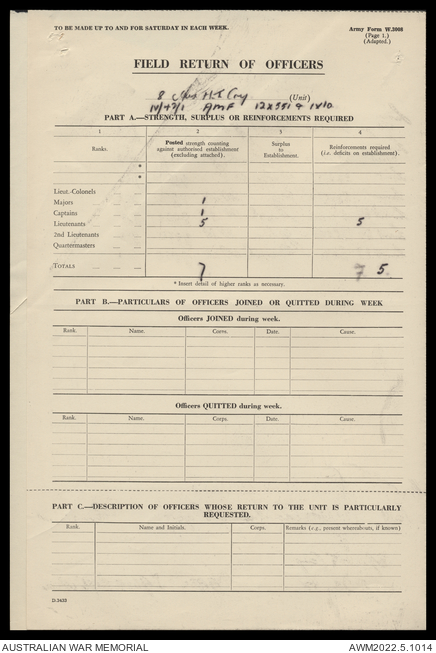 TO BE MADE UP TO AND FOR SATURDAY IN EACH WEEK.
Army Form W.3008
(Page 1.)
(Adapted.)
FIELD RETURN OF OFFICERS
8 (Unit)
AMF
PART A.—STRENGTH, SURPLUS OR REINFORCEMENTS REQUIRED
1 2 3 4
Ranks. Posted strength counting against authorised establishment (excluding attached). Surplus to Establishment. Reinforcements required (i.e. deficits on establishment).
*
*
Lieut.-Colonels
Majors 1
Captains 1
Lieutenants 5 5
2nd Lieutenants
Quartermasters
TOTALS 7 7 5
* Insert detail of higher ranks as necessary.
PART B.—PARTICULARS OF OFFICERS JOINED OR QUITTED DURING WEEK
Officers JOINED during week.
Rank. Name. Corps. Date. Cause.
Officers QUITTED during week.
Rank. Name. Corps. Date. Cause.
PART C.—DESCRIPTION OF OFFICERS WHOSE RETURN TO THE UNIT IS PARTICULARLY
REQUESTED.
Rank. Name and Initials. Corps. Remarks (e.g., present whereabouts, if known)
D.3433
AUSTRALIAN WAR MEMORIAL AWM2022.5.1014